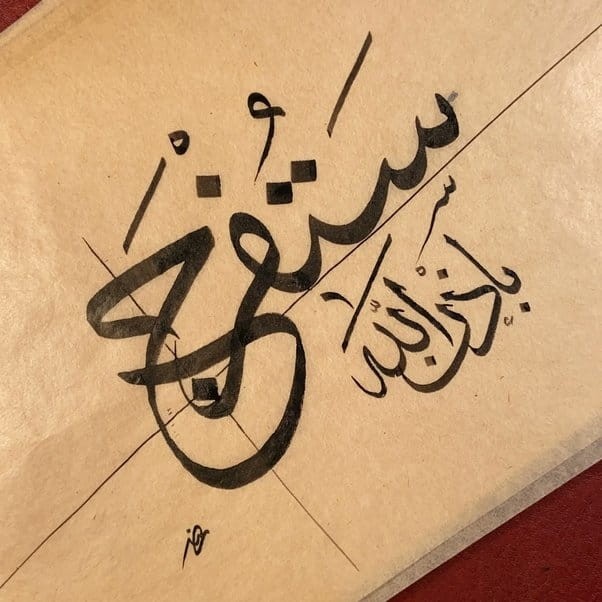 سَتُفْرَجُ
بإذن الله